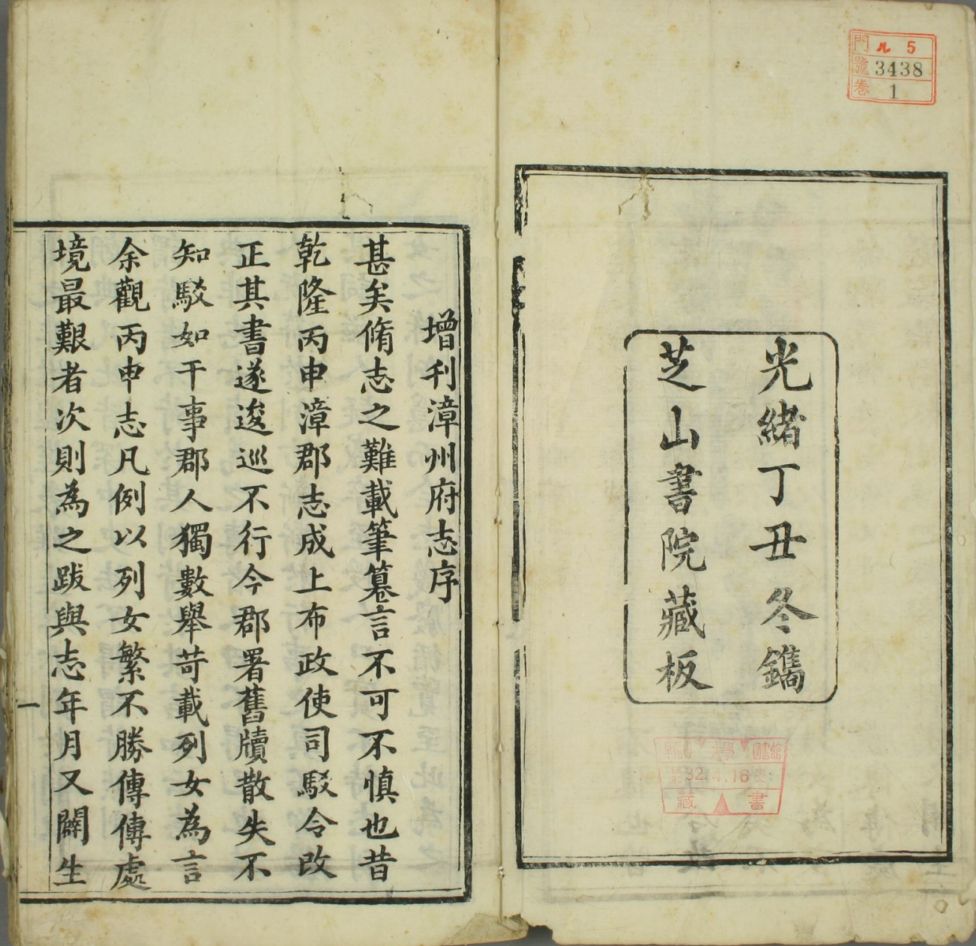 門 ル 5
號 3438
卷 1
光緒丁丑冬鐫
芝山書院藏板
32.4.16
藏書
增刊漳州府志序
甚矣脩志之難載筆纂言不可不慎也昔
乾隆丙申漳郡志成上布政使司駁令改
正其書遂逡巡不行今郡署舊牘散失不
知駁如干事郡人獨數舉苛載列女為言
余觀丙申志凡例以列女繁不勝傳傳處
境最艱者次則為之跋與志年月又關生
一